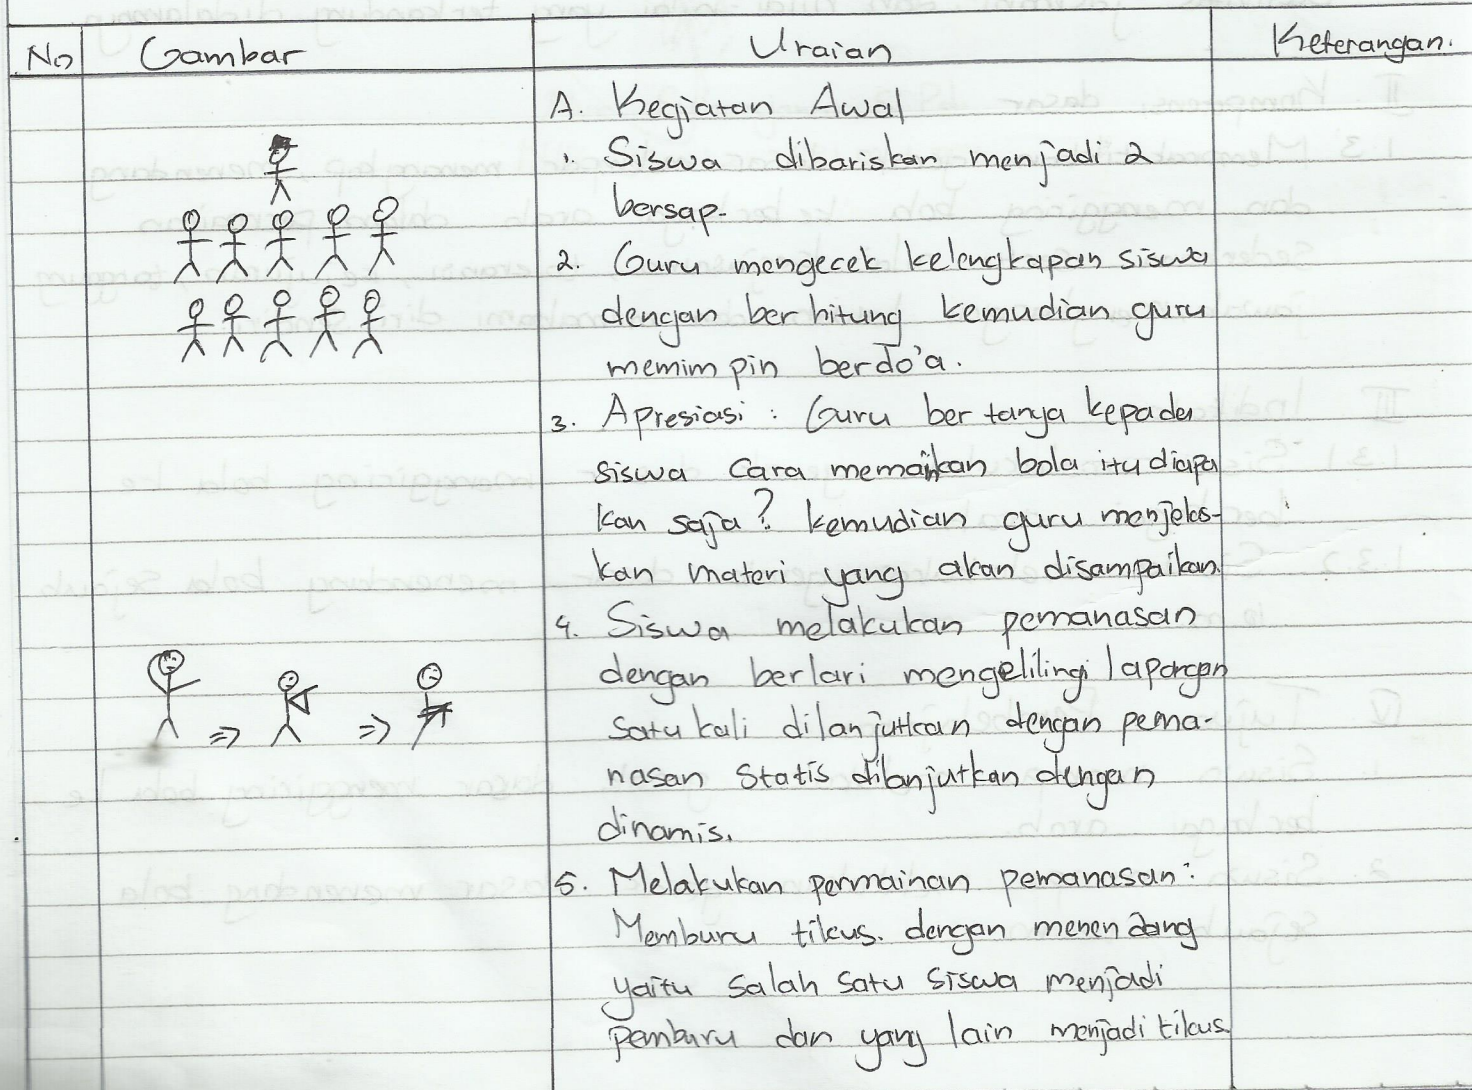 No Gambar Uraian Keterangan.
A. Kegiatan Awal
1. Siswa dibariskan menjadi 2
bersap.
2. Guru mengecek kelengkapan siswa
dengan berhitung kemudian guru
memimpin berdo'a.
3. Apresiasi : Guru bertanya kepada
siswa cara memainkan bola itu diapa
kan saja? kemudian guru menjelas-
kan materi yang akan disampaikan.
4. Siswa melakukan pemanasan
dengan berlari mengelilingi lapangan
satu kali dilanjutkan dengan pema-
nasan statis dilanjutkan dengan
dinamis.
5. Melakukan permainan pemanasan :
Memburu tikus. dengan menendang
yaitu salah satu siswa menjadi
pemburu dan yang lain menjadi tikus